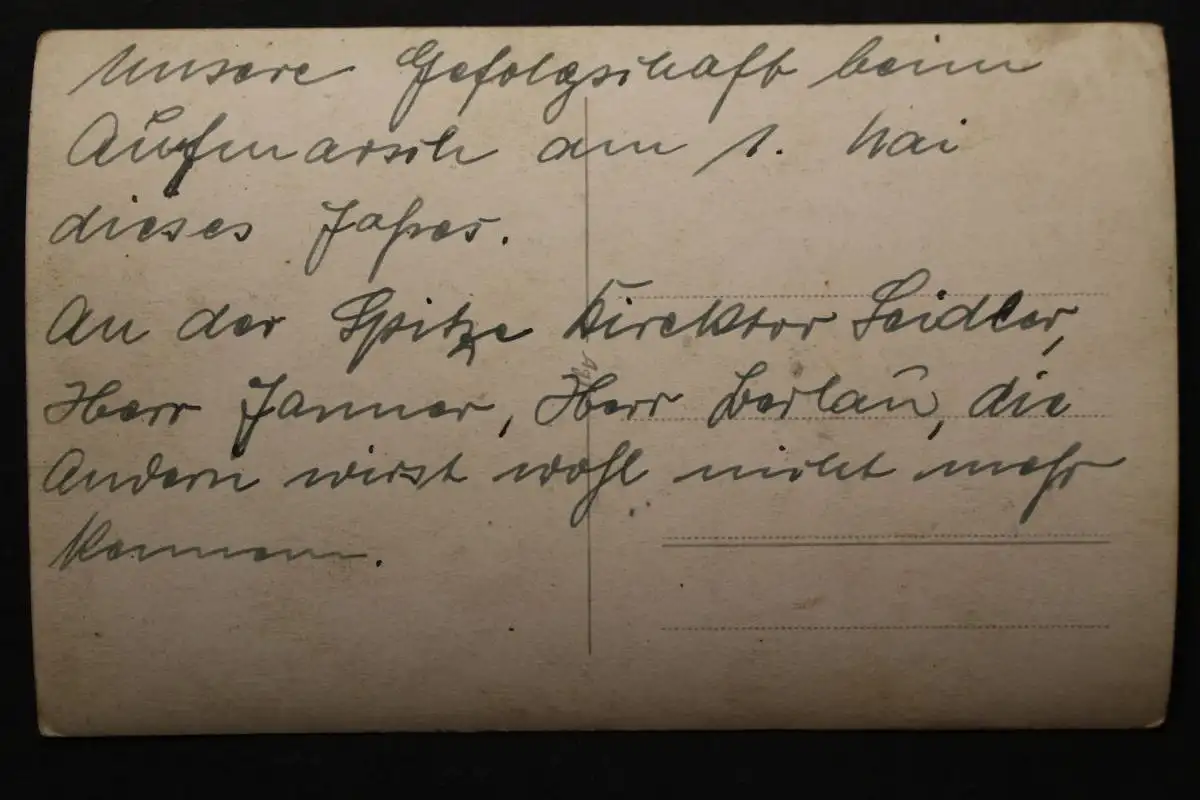 Unsere Gefolgschaft beim
Aufmarsch am 1. Mai
dieses Jahres.
An der Spitze Direktor Seidler,
Herr Janner, Herr Berlau, die
Andern wirst wohl nicht mehr
kennen.